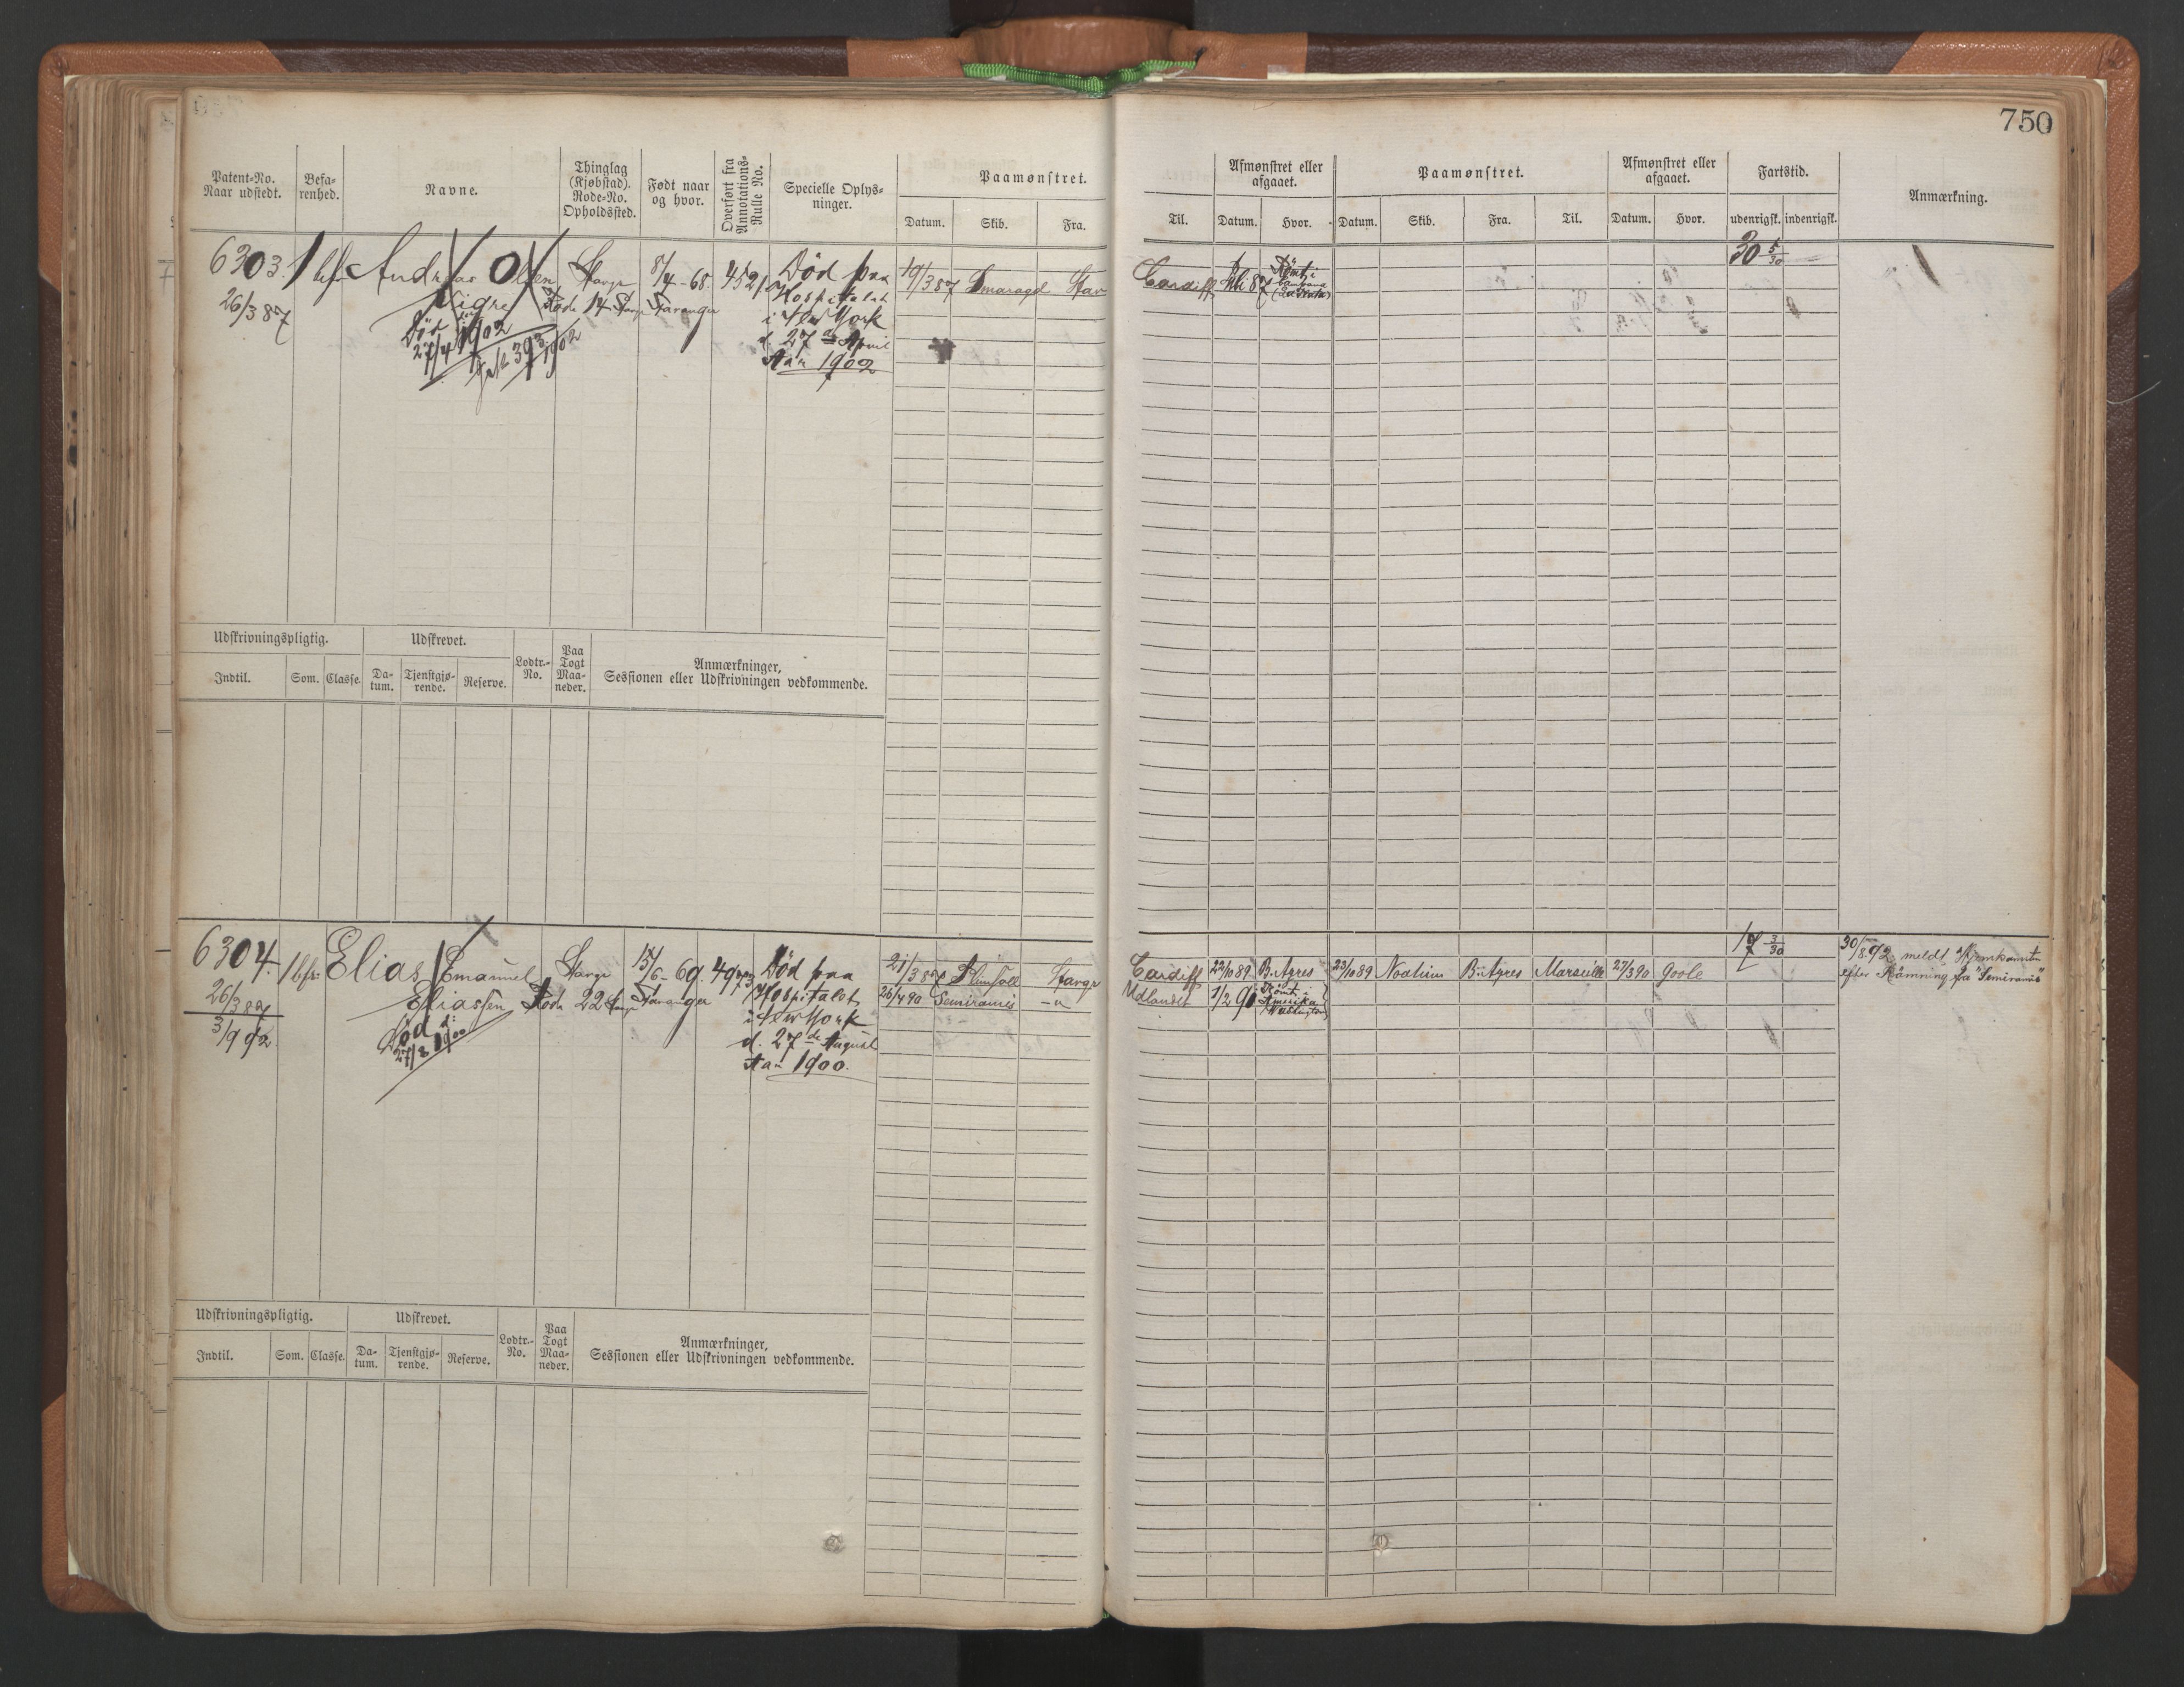 750
Patent-No. Naar udstedt.
Befarenhed.
Navne.
Thinglag (Kjøbstad). Rode-No. Opholdssted.
Født naar og hvor.
Overført fra Annotations-Rulle No.
Specielle Oplysninger.
Paamønstret.
Datum. Skib. Fra.
Til.
Afmønstret eller afgaaet.
Datum. Hvor.
Paamønstret.
Datum. Skib. Fra. Til.
Afmønstret eller afgaaet.
Datum. Hvor.
Fartstid.
udenrigsk. indenrigsk.
Anmærkning.
6303.
26/3 87
Andreas Olsen
Vigre
Død den
27/4 1902
Stavgr
Rode 14 Stavgr
8/4 - 68.
Stavanger
4521
Død paa
Hospitalet
i New York
d. 27de April
Aar 1902
19/3 87 Smaragd Stav
Cardiff
Römt i
30 5/30
Udskrivningspligtig.
Indtil. Som. Classe.
Udskrevet.
Datum. Tjenstgjørende. Reserve.
Lodtr.-No.
Paa Togt Maaneder.
Anmærkninger,
Sessionen eller Udskrivningen vedkommende.
6304.
26/3 87
3/9 92
Elias Emanuel
Eliassen
Død d:
27/8 1900
Stavgr
Rode 22
15/6 - 69
Stavanger
4973
Død paa
Hospitalet
i New York
d. 27de August
Aar 1900.
21/3 87 Plimsoll Stavgr
26/4 90 Semiramis - " -
Cardiff 22/10 89 B. Ayres 23/10 89 Noatun B. Ayres Marseille 27/3 90 Goole
Udlandet 1/2 91 Römt i Amerika
17 3/30
30/8 92 meldt Hjemkomst
efter Römning fra "Semiramis"
Udskrivningspligtig.
Indtil. Som. Classe.
Udskrevet.
Datum. Tjenstgjørende. Reserve.
Lodtr.-No.
Paa Togt Maaneder.
Anmærkninger,
Sessionen eller Udskrivningen vedkommende.